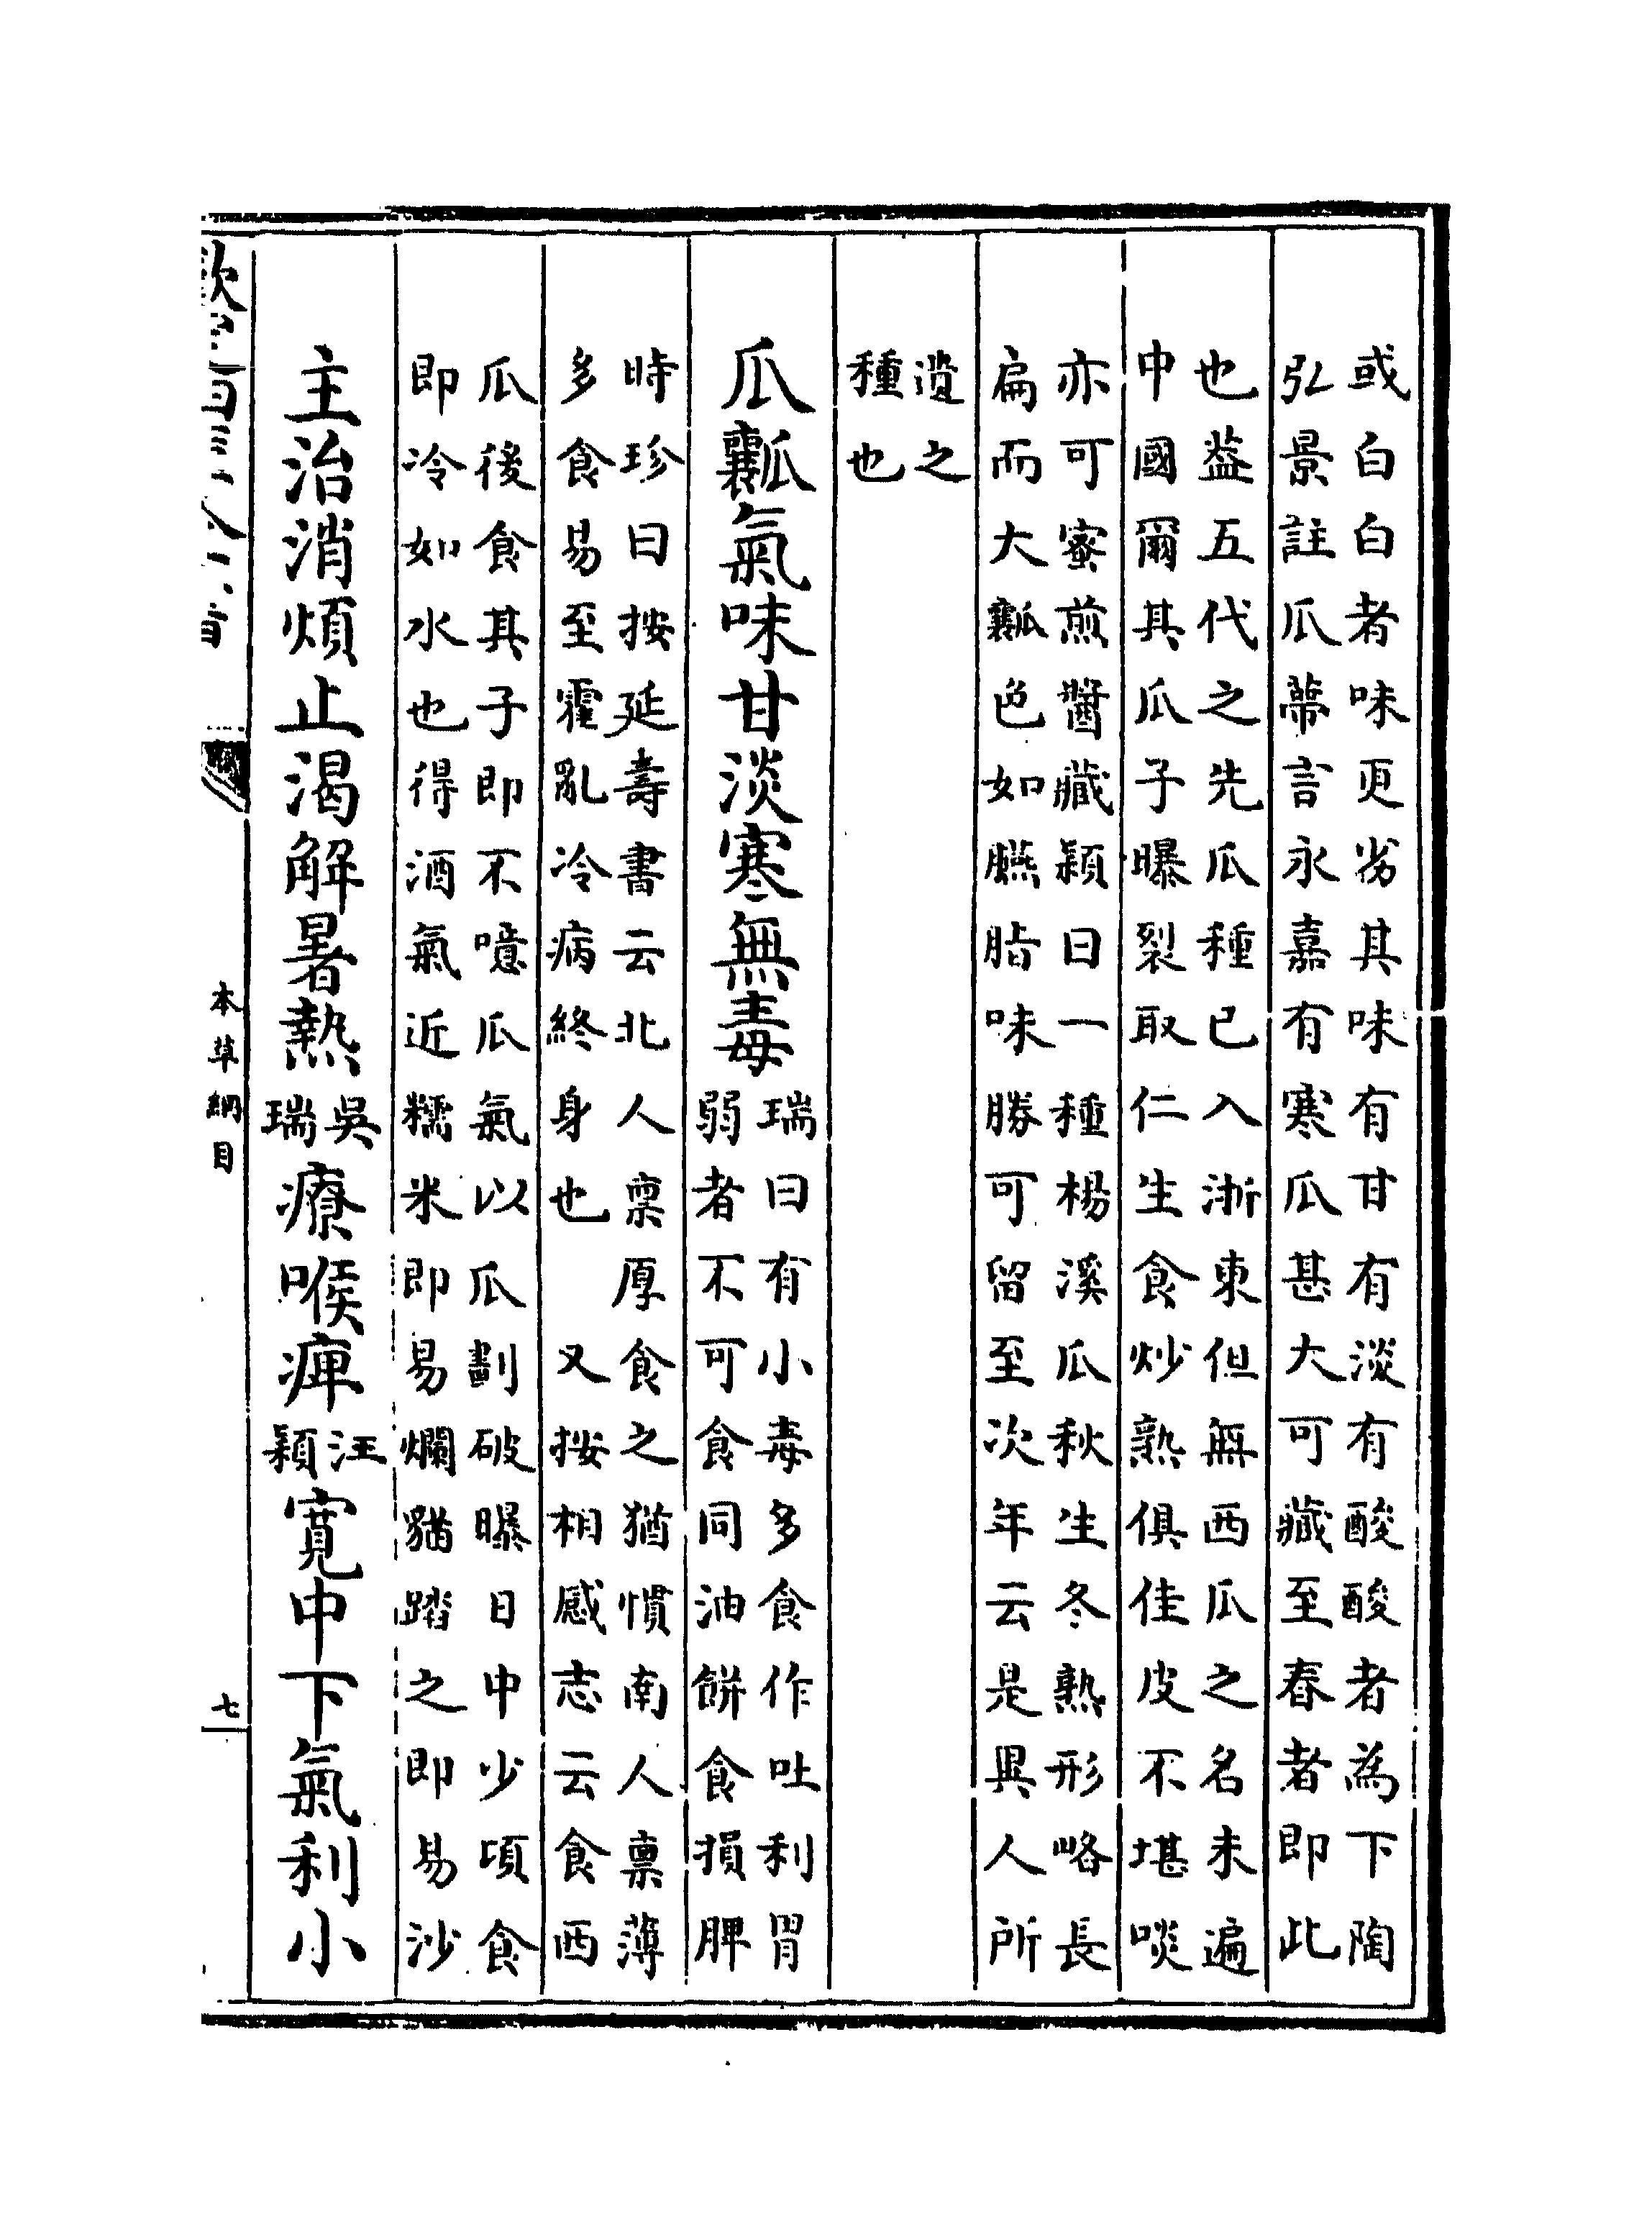 或白白者味更劣其味有甘有淡有酸酸者為下陶
弘景註瓜蔕言永嘉有寒瓜甚大可藏至春者即此
也盖五代之先瓜種已入浙東但無西瓜之名未遍
中國爾其瓜子曝裂取仁生食炒熟俱佳皮不堪啖
亦可蜜煎醬藏頴曰一種楊溪瓜秋生冬熟形略長
扁而大瓤色如臙脂味勝可留至次年云是異人所
遺之
種也
瓜瓤氣味甘淡寒無毒
瑞曰有小毒多食作吐利胃
弱者不可食同油餅食損脾
時珍曰按延壽書云北人稟厚食之猶慣南人稟薄
多食易至霍亂冷病終身也 又按相感志云食西
瓜後食其子即不噫瓜氣以瓜劃破曝日中少頃食
即冷如水也得酒氣近糯米即易爛貓踏之即易沙
主治消煩止渴解暑熱吳瑞療喉痺汪頴寛中下氣利小
本草綱目
七